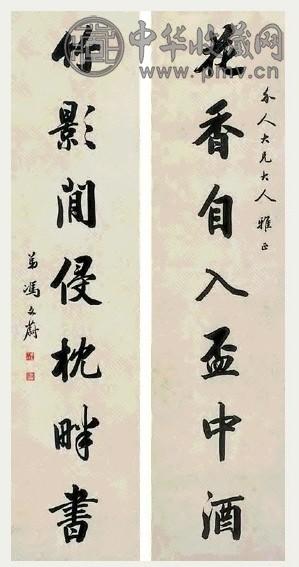 中华收藏网
www.pmv.cn
介人大兄大人 雅正
花香自入盃中酒
竹影閒侵枕畔書
弟馮文蔚